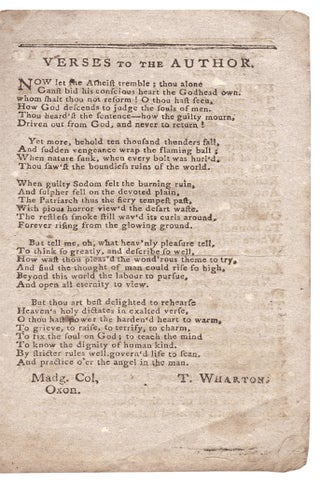 VERSES TO THE AUTHOR.
NOW let the Atheist tremble; thou alone
Canst bid his conscious heart the Godhead own.
whom shalt thou not reform! O thou hast seen,
How God descends to judge the souls of men.
Thou heard'st the sentence—how the guilty mourn,
Driven out from God, and never to return!
Yet more, behold ten thousand thunders fall,
And sudden vengeance wrap the flaming ball;
When nature sunk, when every bolt was hurl'd,
Thou saw'st the boundless ruins of the world.
When guilty Sodom felt the burning ruin,
And sulpher fell on the devoted plain,
The Patriarch thus the fiery tempest past,
With pious horror view'd the desart waste.
The restless smoke still wav'd its curls around,
Forever rising from the glowing ground.
But tell me, oh, what heav'nly pleasure tell,
To think so greatly, and describe so well,
How wast thou pleas'd the wond'rous theme to try,
And find the thought of man could rise so high,
Beyond this world the labour to pursue,
And open all eternity to view.
But thou art best delighted to rehearse
Heaven's holy dictates in exalted verse,
O thou hast power the harden'd heart to warm,
To grieve, to raise, to terrify, to charm,
To fix the soul on God; to teach the mind
To know the dignity of human kind.
By stricter rules well govern'd life to scan.
And practice o'er the angel in the man.
Madg. Col, T. WHARTON.
Oxon.